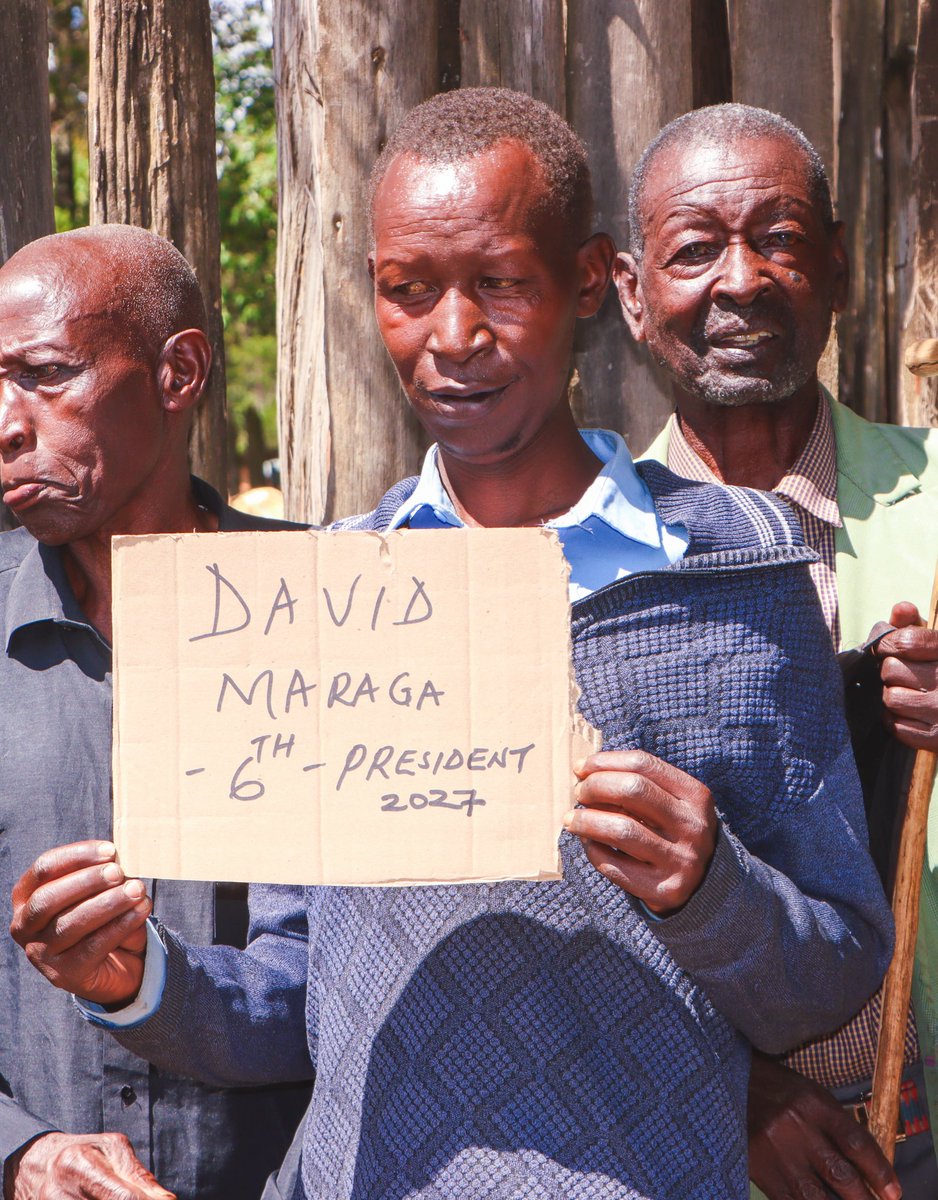 DAVID
MARAGA
- 6TH - PRESIDENT
2027